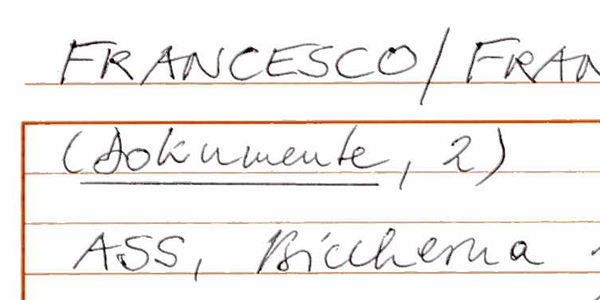 FRANCESCO/FRAN
(Dokumente, 2)
ASS, Biccherna